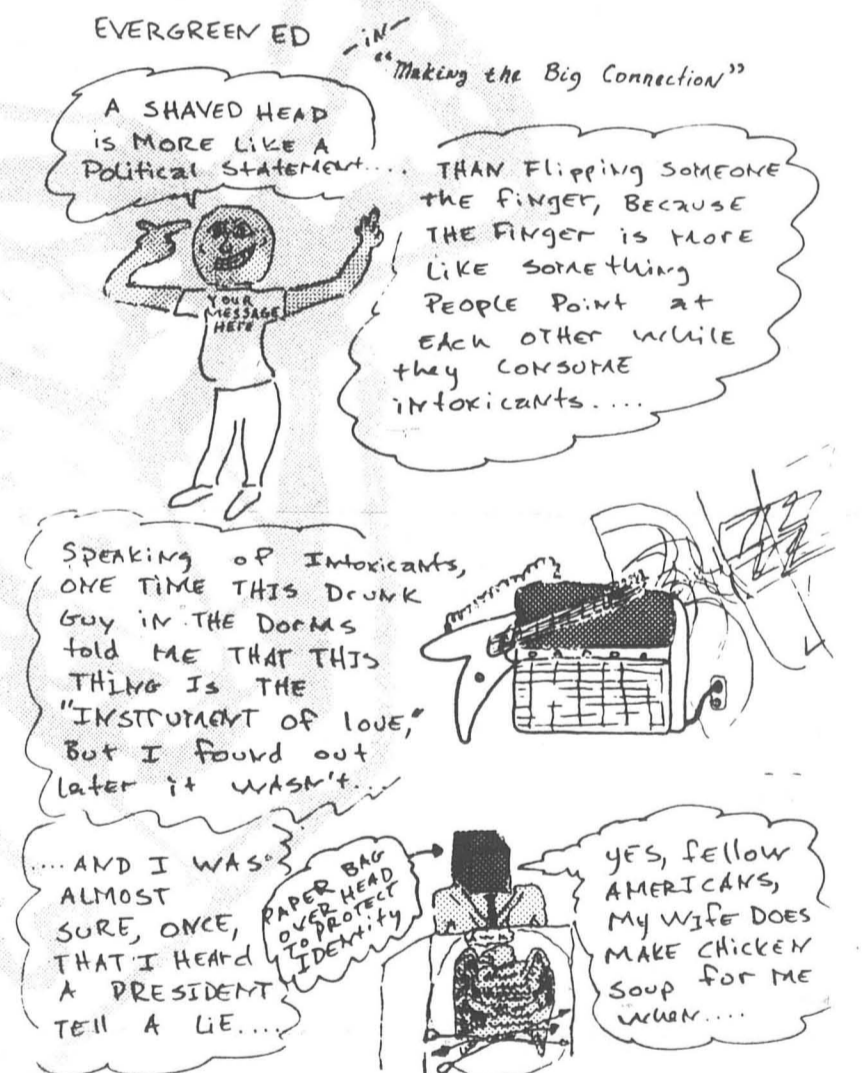 EVERGREEN ED
-iN-
"Making the Big Connection"
A SHAVED HEAD
iS MORE LIKE A
Political Statement....
THAN Flipping SOMEONE
the finger, BECAUSE
THE FiNger is MORE
LiKE Something
PEOPLE Point at
EAch OTHER while
they CONSUME
intoxicants....
YOUR
MESSAGE
HERE
SPEAKiNg of Intoxicants,
ONE TiME THIS Drunk
Guy iN THE DORMS
told ME THAT THIS
THING IS THE
"INSTRUMENT OF lOVE,"
But I found out
later it WASN't...
...AND I WAS
ALMOST
SURE, ONCE,
THAT I HEARd
A PRESIDENT
TEll A LiE....
PAPER BAG
OVER HEAD
TO PROTECT
IDENtity
YES, fellow
AMERICANS,
My WIfE DOES
MAKE CHiCKEN
SOUP for ME
WHEN....